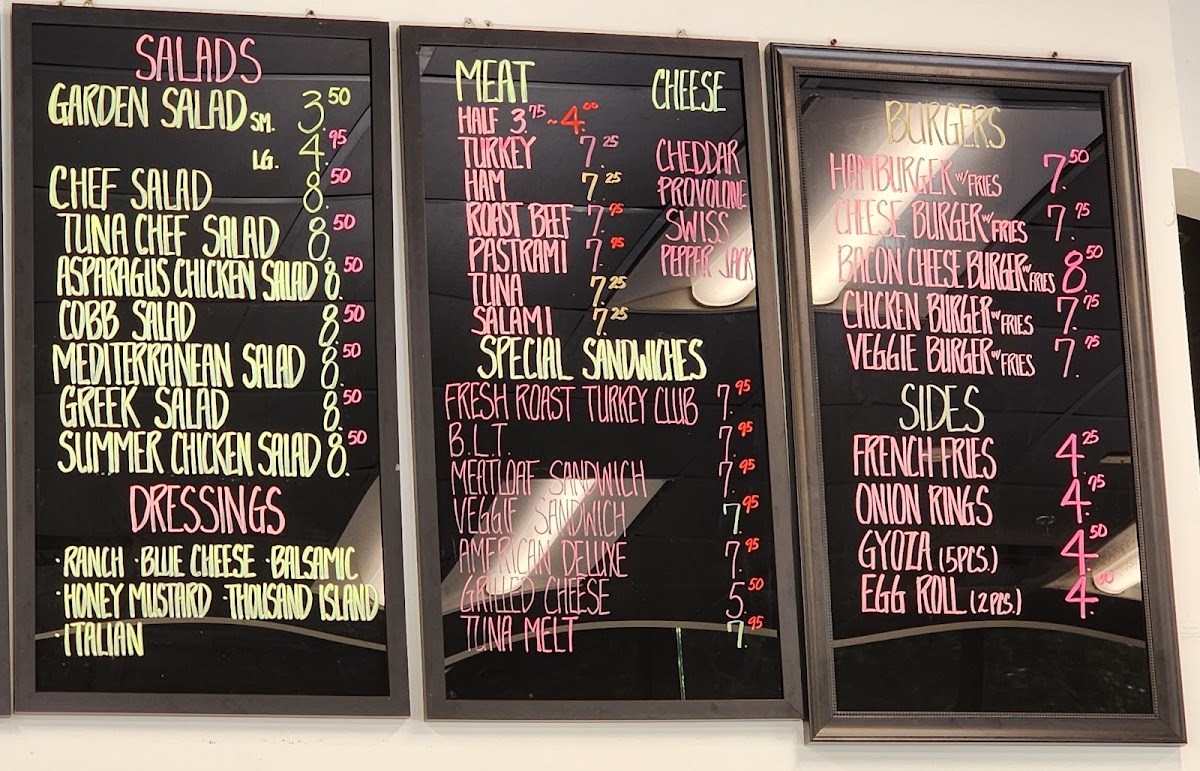 SALADS
GARDEN SALAD SM. 3.50
LG. 4.95
CHEF SALAD 8.50
TUNA CHEF SALAD 8.50
ASPARAGUS CHICKEN SALAD 8.50
COBB SALAD 8.50
MEDITERRANEAN SALAD 8.50
GREEK SALAD 8.50
SUMMER CHICKEN SALAD 8.50
DRESSINGS
·RANCH ·BLUE CHEESE ·BALSAMIC
·HONEY MUSTARD ·THOUSAND ISLAND
·ITALIAN
MEAT
HALF 3.75 ~ 4.00
TURKEY 7.25
HAM 7.25
ROAST BEEF 7.95
PASTRAMI 7.95
TUNA 7.25
SALAMI 7.25
CHEESE
CHEDDAR
PROVOLONE
SWISS
PEPPER JACK
SPECIAL SANDWICHES
FRESH ROAST TURKEY CLUB 7.95
B.L.T. 7.95
MEATLOAF SANDWICH 7.95
VEGGIE SANDWICH 7.95
AMERICAN DELUXE 7.95
GRILLED CHEESE 5.50
TUNA MELT 7.95
BURGERS
HAMBURGER W/FRIES 7.50
CHEESE BURGER W/FRIES 7.75
BACON CHEESE BURGER W/FRIES 8.50
CHICKEN BURGER W/FRIES 7.75
VEGGIE BURGER W/FRIES 7.75
SIDES
FRENCH FRIES 4.25
ONION RINGS 4.75
GYOZA (5PCS.) 4.50
EGG ROLL (2PCS.) 4.00